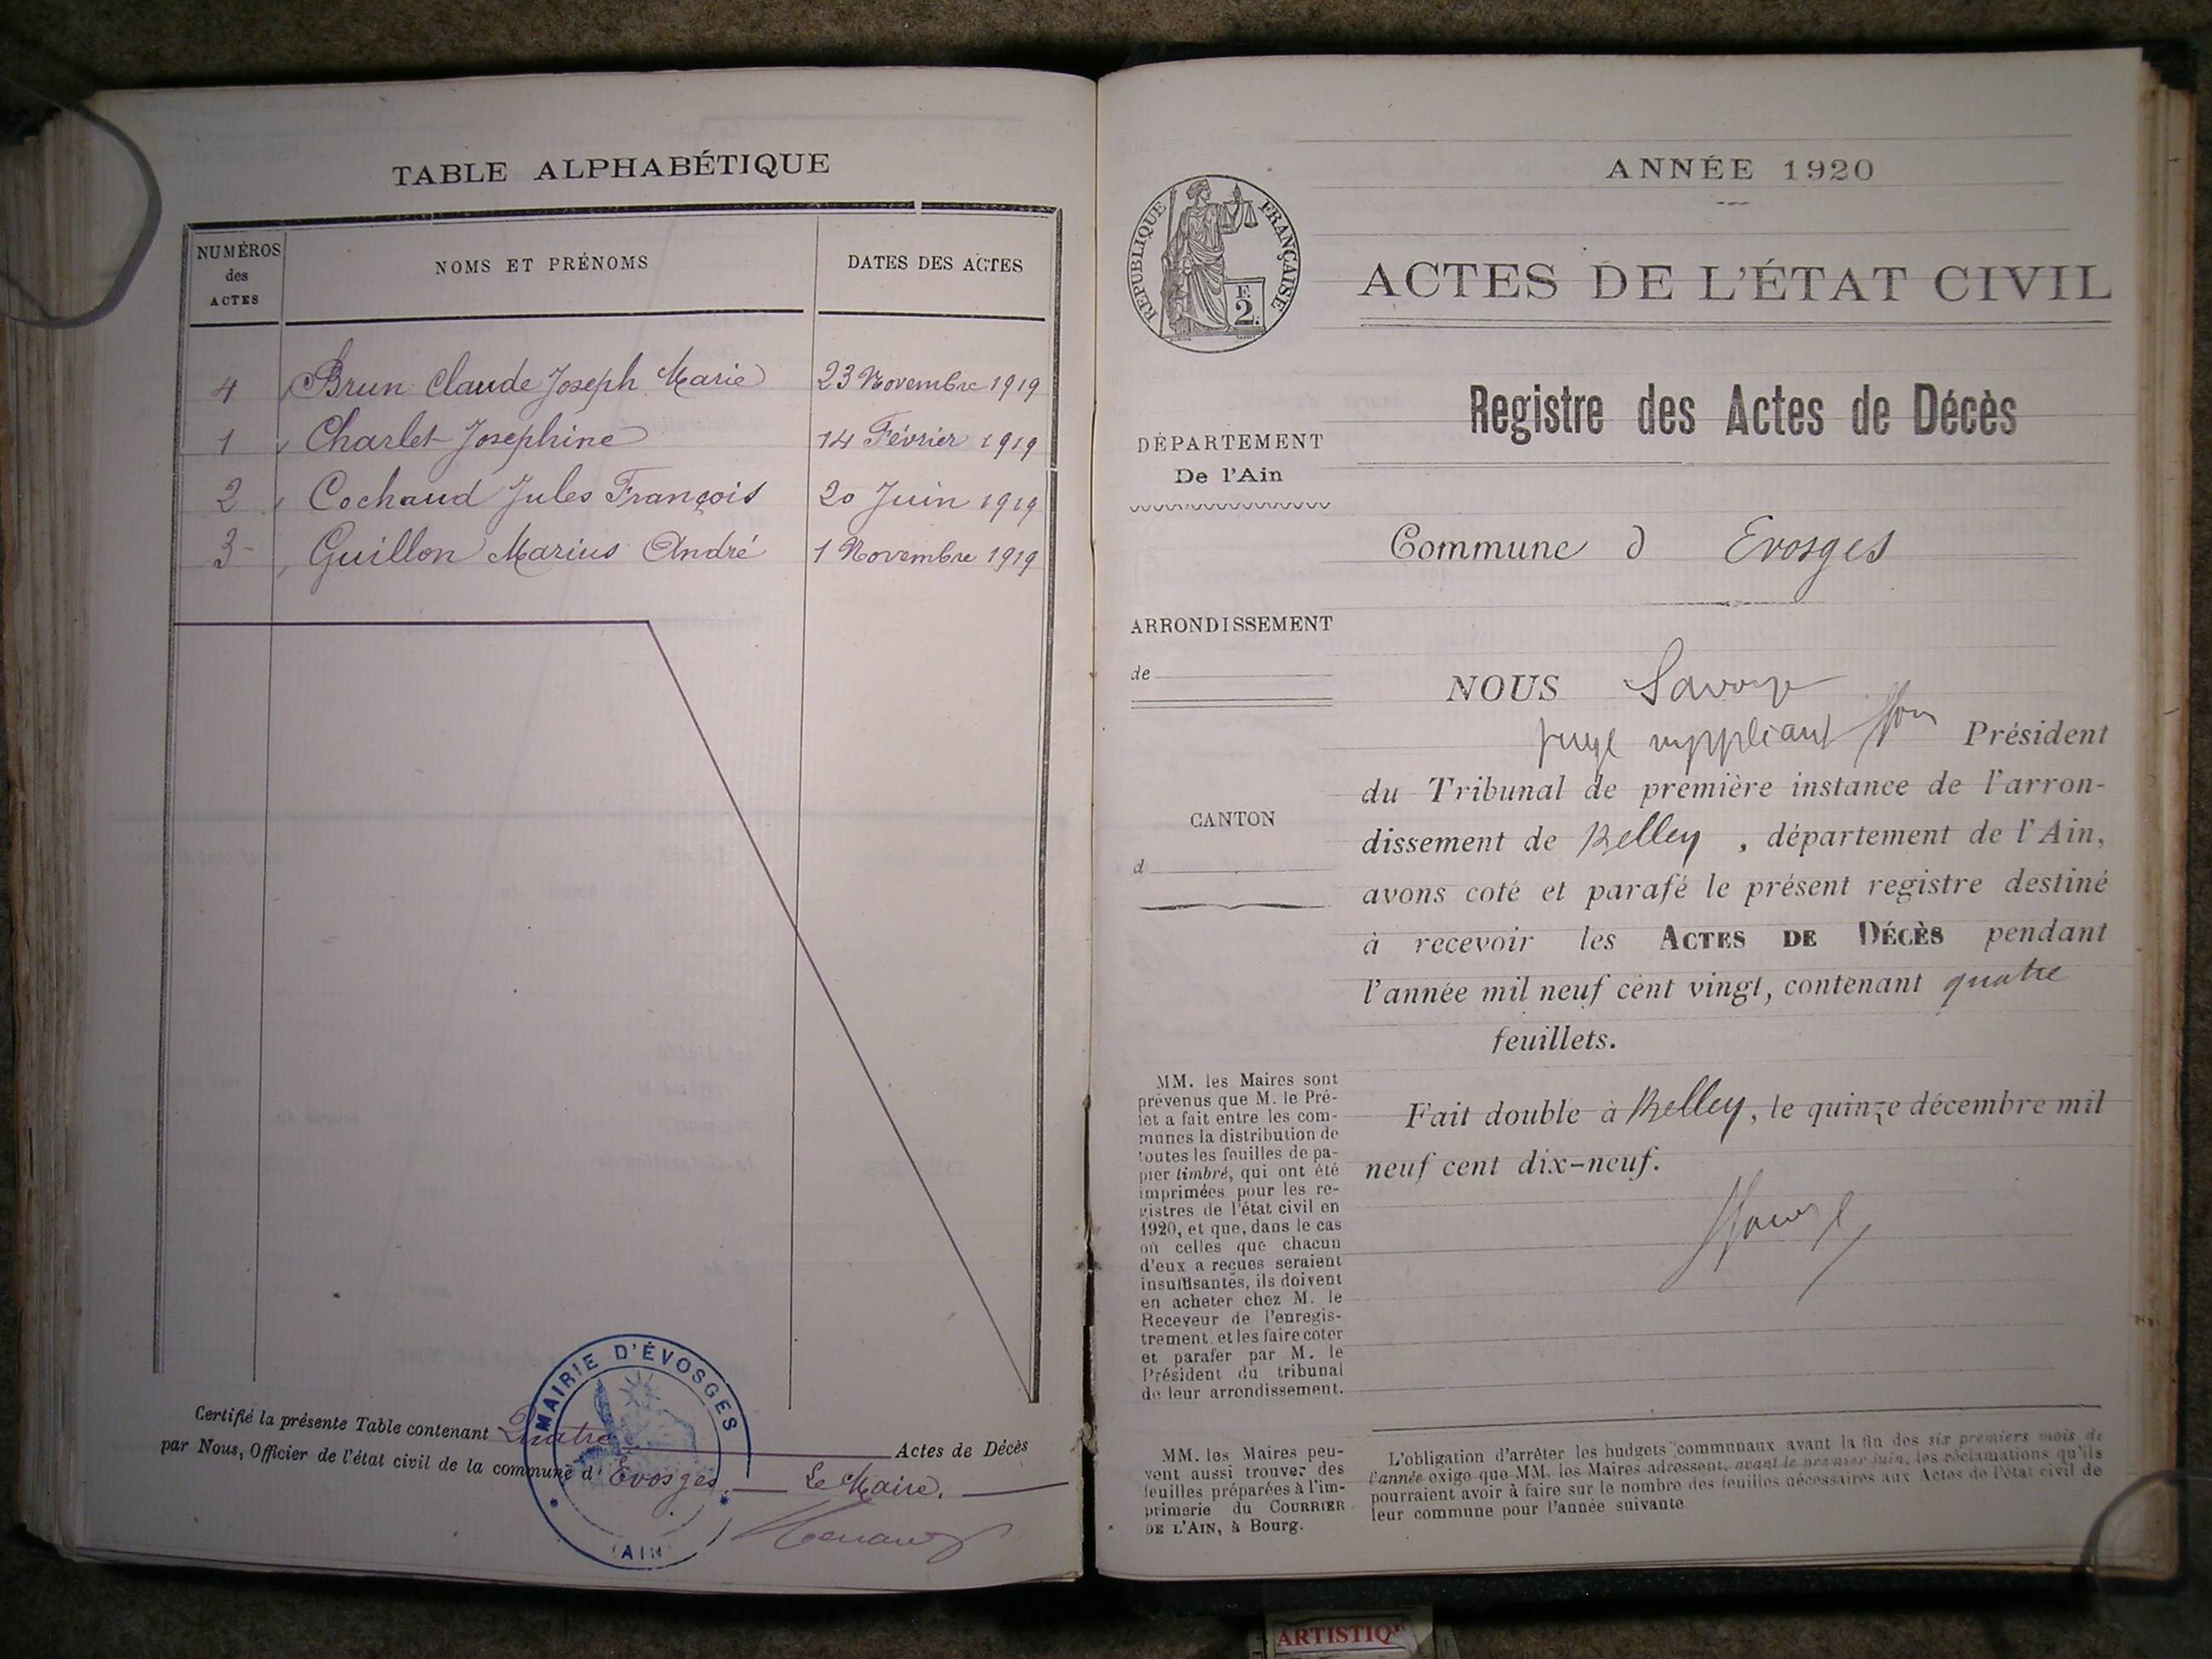 TABLE ALPHABÉTIQUE
NUMÉROS
des
ACTES
NOMS ET PRÉNOMS
DATES DES ACTES
4 Brun Claude Joseph Marie 23 Novembre 1919
1 Charlet Josephine 14 Février 1919
2 Cochaud Jules François 20 Juin 1919
3 Guillon Marius André 1 Novembre 1919
Certifié la présente Table contenant Quatre Actes de Décès
par Nous, Officier de l'état civil de la commune d' Evosges. Le Maire,
MAIRIE D'ÉVOSGES
(AIN)
ANNÉE 1920
RÉPUBLIQUE FRANÇAISE
F.
2.
ACTES DE L'ÉTAT CIVIL
Registre des Actes de Décès
DÉPARTEMENT
De l'Ain
Commune d Evosges
ARRONDISSEMENT
de
NOUS
juge suppléant Président
du Tribunal de première instance de l'arron-
dissement de Belley , département de l'Ain,
avons coté et parafé le présent registre destiné
à recevoir les ACTES DE DÉCÈS pendant
l'année mil neuf cent vingt, contenant quatre
feuillets.
Fait double à Belley, le quinze décembre mil
neuf cent dix-neuf.
CANTON
d
MM. les Maires sont
prévenus que M. le Pré-
fet a fait entre les com-
munes la distribution de
toutes les feuilles de pa-
pier timbré, qui ont été
imprimées pour les re-
gistres de l'état civil en
1920, et que, dans le cas
où celles que chacun
d'eux a reçues seraient
insuffisantes, ils doivent
en acheter chez M. le
Receveur de l'enregis-
trement et les faire coter
et parafer par M. le
Président du tribunal
de leur arrondissement.
MM. les Maires peu-
vent aussi trouver des
feuilles préparées à l'im-
primerie du COURRIER
DE L'AIN, à Bourg.
L'obligation d'arrêter les budgets communaux avant la fin des six premiers mois de
l'année exige que MM. les Maires adressent, avant le premier juin, les réclamations qu'ils
pourraient avoir à faire sur le nombre des feuilles nécessaires aux Actes de l'état civil de
leur commune pour l'année suivante
ARTISTIQ